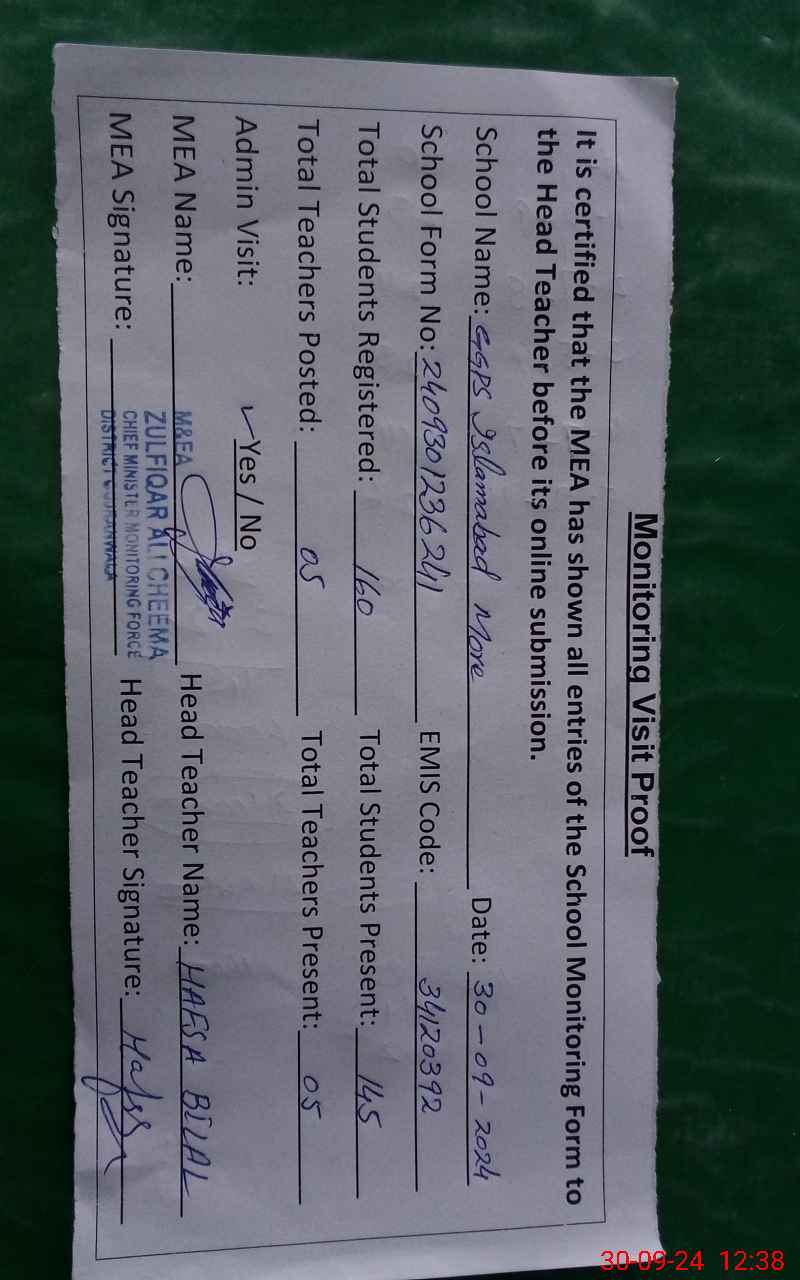 Monitoring Visit Proof
It is certified that the MEA has shown all entries of the School Monitoring Form to
the Head Teacher before its online submission.
School Name: GGPS Islamabad More Date: 30-09-2024
School Form No: 2409301236241 EMIS Code: 34120392
Total Students Registered: 160 Total Students Present: 145
Total Teachers Posted: 05 Total Teachers Present: 05
Admin Visit: ✓Yes / No
MEA Name: Head Teacher Name: HAFSA BILAL
MEA Signature: Head Teacher Signature: Hafsa
M&EA
ZULFIQAR ALI CHEEMA
CHIEF MINISTER MONITORING FORCE
DISTRICT GUJRANWALA
30-09-24 12:38